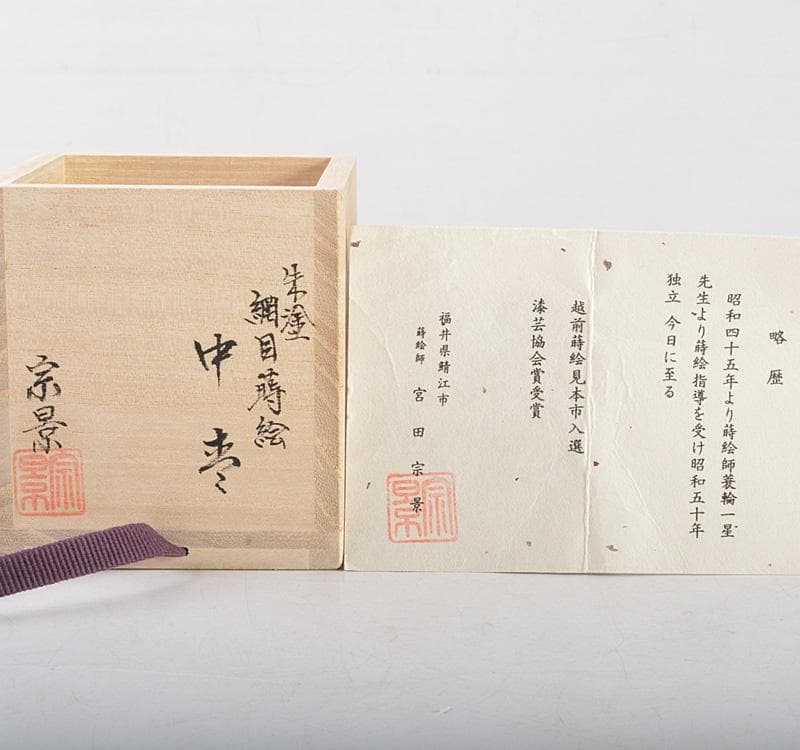 朱塗
網目蒔絵
中棗
宗景
宗景
略歴
昭和四十五年より蒔絵師蓑輪一星
先生より蒔絵指導を受け昭和五十年
独立 今日に至る
越前蒔絵見本市入選
漆芸協会賞受賞
福井県鯖江市
蒔絵師 宮田宗景
宗景